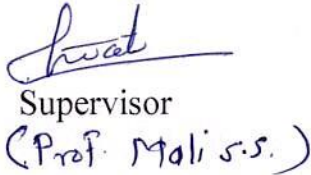 Supervisor
(Prof. Mali S.S.)